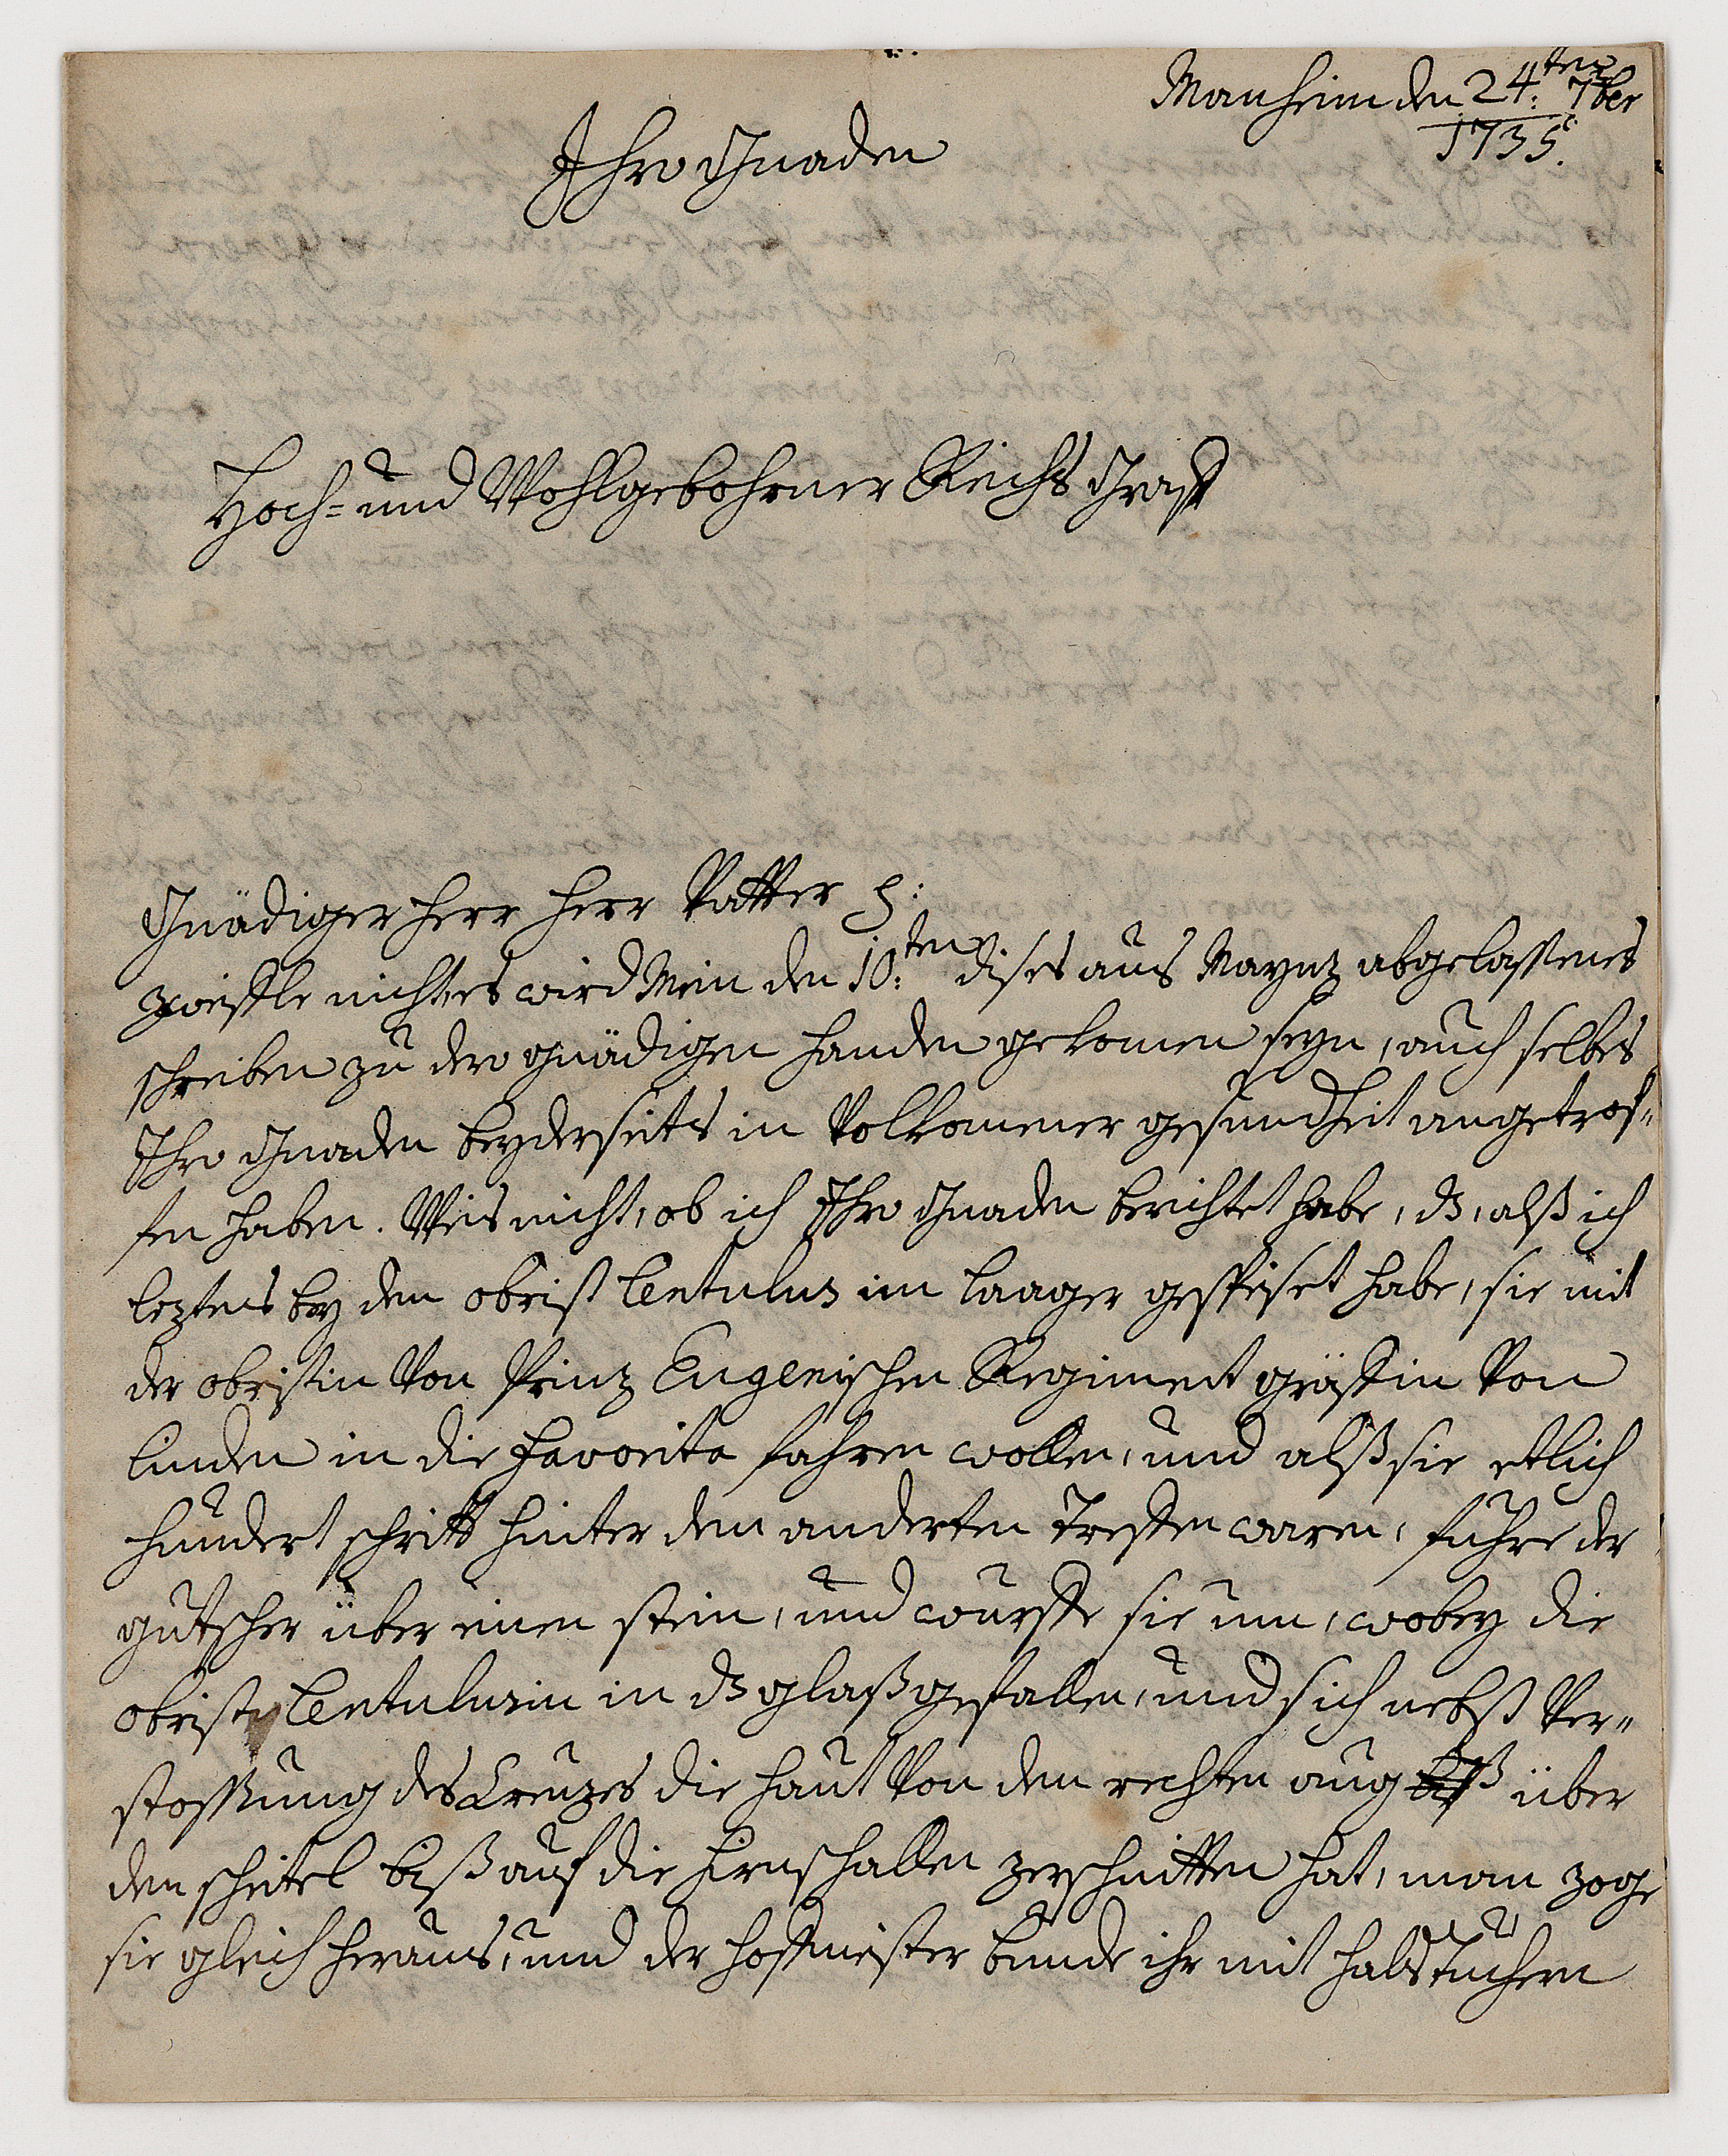 Manheim den 24:ten 7ber
1735.
Ihro Gnaden
Hoch= und Wohlgebohrner Reichs Graff
Gnädiger Herr Herr Vatter
zweiffle nicht, es wird Mein den 10:ten dises aus Maynz abgelassenes
schreiben zu dero gnädigen handen gekomen seyn, auch selbes
Ihro Gnaden beyderseits in Volkomener gesundheit angetrof=
fen haben. Weis nicht, ob ich Ihro Gnaden berichtet habe, dß, alß ich
leztens bey dem obrist Lentulus im laager gespeiset habe, sie mit
der obristin Von Prinz Eugenischen Regiment gräffin Von
linden in die Favorita fahren wollen, und alß sie etlich
hundert schritt hinter dem anderten Treffen waren, führe der
gutscher über einen stein, und wurffe sie um, wobey die
obristin Lentulusin in dß glaß gefallen, und sich nebst Ver=
stossung des Creuzes die haut Von dem rechten aug biß über
den scheitel biß auf die hirnschallen zerschnitten hat, man zoge
sie gleich heraus, und der hoffmeister bunde ihr mit halstüchern